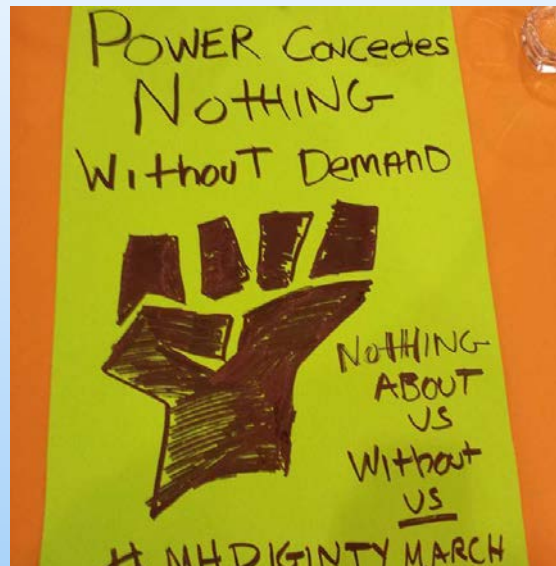 POWER CONCEDES
NOTHING
WITHOUT DEMAND
NOTHING
ABOUT
US
Without
US
# MHDIGINTY MARCH